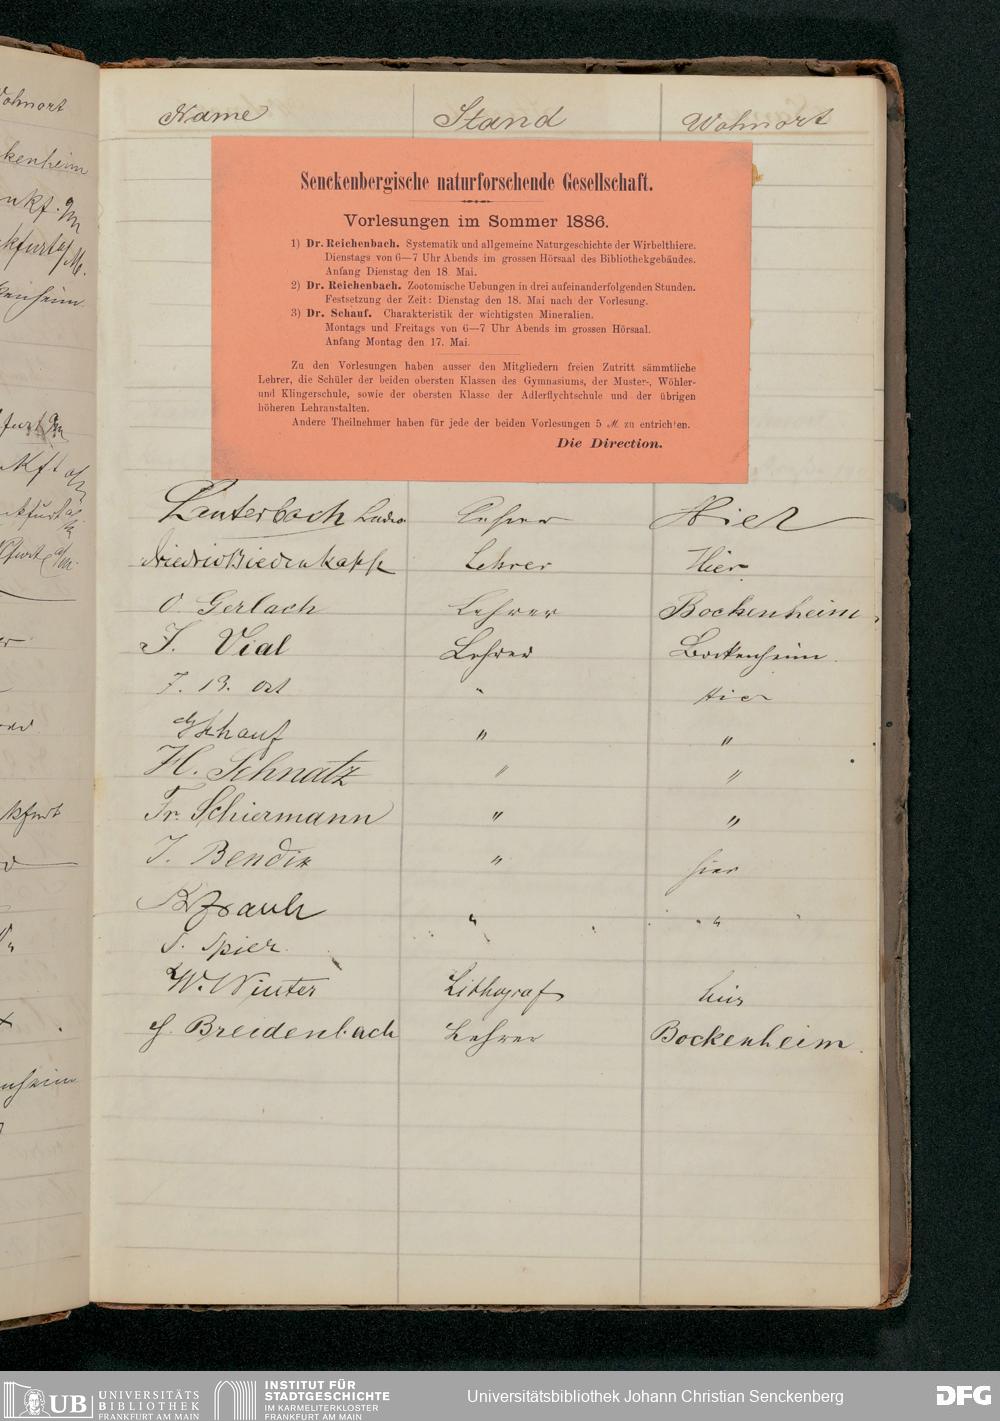 Name Stand Wohnort
Senckenbergische naturforschende Gesellschaft.
Vorlesungen im Sommer 1886.
1) Dr. Reichenbach. Systematik und allgemeine Naturgeschichte der Wirbelthiere.
Dienstags von 6—7 Uhr Abends im grossen Hörsaal des Bibliothekgebäudes.
Anfang Dienstag den 18. Mai.
2) Dr. Reichenbach. Zootomische Uebungen in drei aufeinanderfolgenden Stunden.
Festsetzung der Zeit: Dienstag den 18. Mai nach der Vorlesung.
3) Dr. Schauf. Charakteristik der wichtigsten Mineralien.
Montags und Freitags von 6—7 Uhr Abends im grossen Hörsaal.
Anfang Montag den 17. Mai.
Zu den Vorlesungen haben ausser den Mitgliedern freien Zutritt sämmtliche
Lehrer, die Schüler der beiden obersten Klassen des Gymnasiums, der Muster-, Wöhler-
und Klingerschule, sowie der obersten Klasse der Adlerflychtschule und der übrigen
höheren Lehranstalten.
Andere Theilnehmer haben für jede der beiden Vorlesungen 5 M. zu entrichten.
Die Direction.
Lauterbach Lehrer Hier
Biedenkapp Lehrer Hier
O. Gerlach Lehrer Bockenheim
J. Vial Lehrer Bockenheim
F. B. Ost " Hier
Schauf " "
H. Schnatz " "
Fr. Schiermann " "
J. Bendix " hier
" "
S. Spier.
W. Winter Lithograf hier
Breidenbach Lehrer Bockenheim
Wohnort
ckenheim
UB UNIVERSITÄTS
BIBLIOTHEK
FRANKFURT AM MAIN
INSTITUT FÜR
STADTGESCHICHTE
IM KARMELITERKLOSTER
FRANKFURT AM MAIN
Universitätsbibliothek Johann Christian Senckenberg
DFG